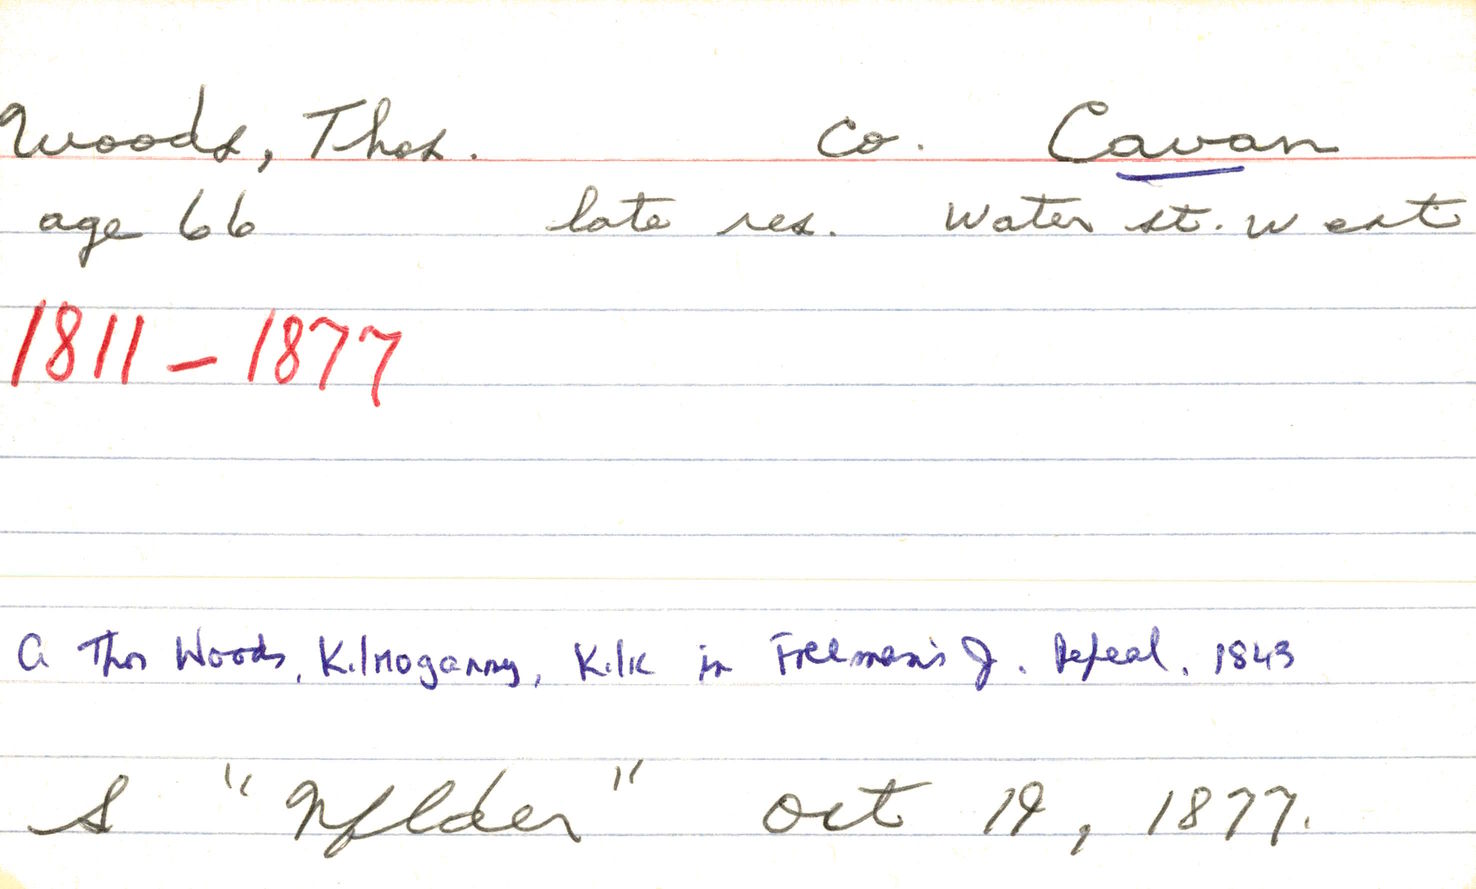 Woods, Thos. Co. Cavan
age 66 late res. Water st. West
1811 - 1877
A Thos Woods, Kilmoganny, Kilk in Freeman's J. Repeal, 1843
S "Nflder" Oct 19, 1877.